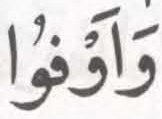 وَاَوْفُوا